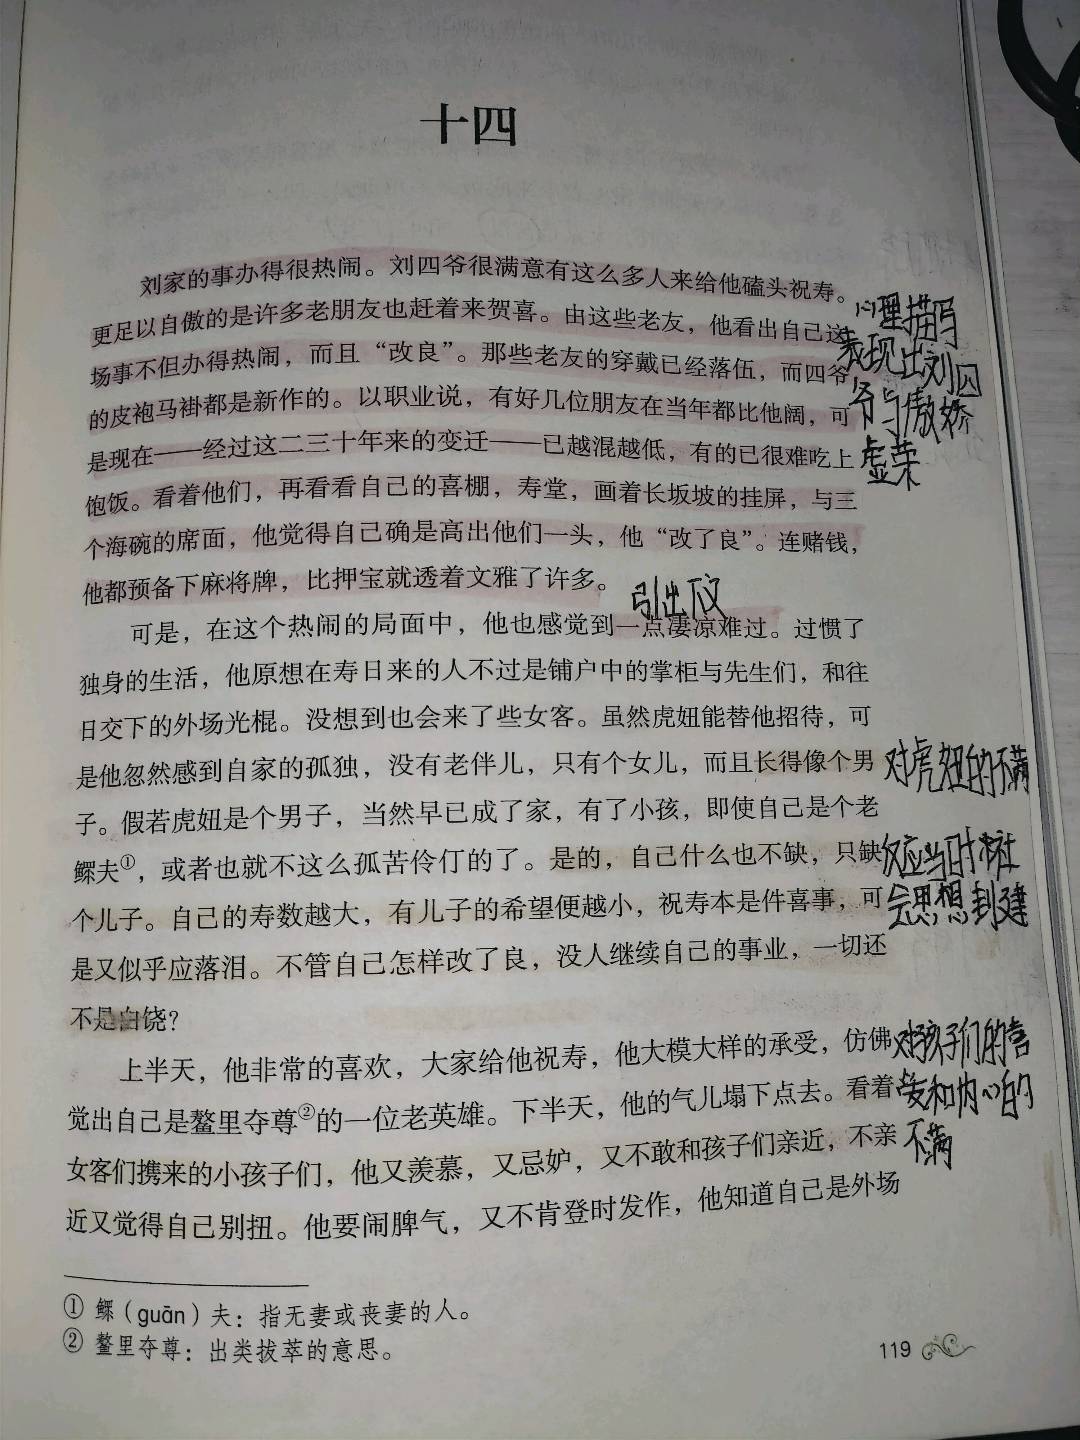 十四
刘家的事办得很热闹。刘四爷很满意有这么多人来给他磕头祝寿。
更足以自傲的是许多老朋友也赶着来贺喜。由这些老友，他看出自己这
场事不但办得热闹，而且“改良”。那些老友的穿戴已经落伍，而四爷
的皮袍马褂都是新作的。以职业说，有好几位朋友在当年都比他阔，可
是现在——经过这二三十年来的变迁——已越混越低，有的已很难吃上
饱饭。看着他们，再看看自己的喜棚，寿堂，画着长坂坡的挂屏，与三
个海碗的席面，他觉得自己确是高出他们一头，他“改了良”。连赌钱，
他都预备下麻将牌，比押宝就透着文雅了许多。
心理描写
表现出刘四
爷与傲娇
虚荣
引出下文
可是，在这个热闹的局面中，他也感觉到一点凄凉难过。过惯了
独身的生活，他原想在寿日来的人不过是铺户中的掌柜与先生们，和往
日交下的外场光棍。没想到也会来了些女客。虽然虎妞能替他招待，可
是他忽然感到自家的孤独，没有老伴儿，只有个女儿，而且长得像个男
子。假若虎妞是个男子，当然早已成了家，有了小孩，即使自己是个老
鳏夫①，或者也就不这么孤苦伶仃的了。是的，自己什么也不缺，只缺
个儿子。自己的寿数越大，有儿子的希望便越小，祝寿本是件喜事，可
是又似乎应落泪。不管自己怎样改了良，没人继续自己的事业，一切还
不是白饶？
对虎妞的不满
反应当时社
会思想封建
上半天，他非常的喜欢，大家给他祝寿，他大模大样的承受，仿佛
觉出自己是鳌里夺尊②的一位老英雄。下半天，他的气儿塌下点去。看着
女客们携来的小孩子们，他又羡慕，又忌妒，又不敢和孩子们亲近，不亲
近又觉得自己别扭。他要闹脾气，又不肯登时发作，他知道自己是外场
对孩子们的喜
爱和内心的
不满
① 鳏（guān）夫：指无妻或丧妻的人。
② 鳌里夺尊：出类拔萃的意思。
119